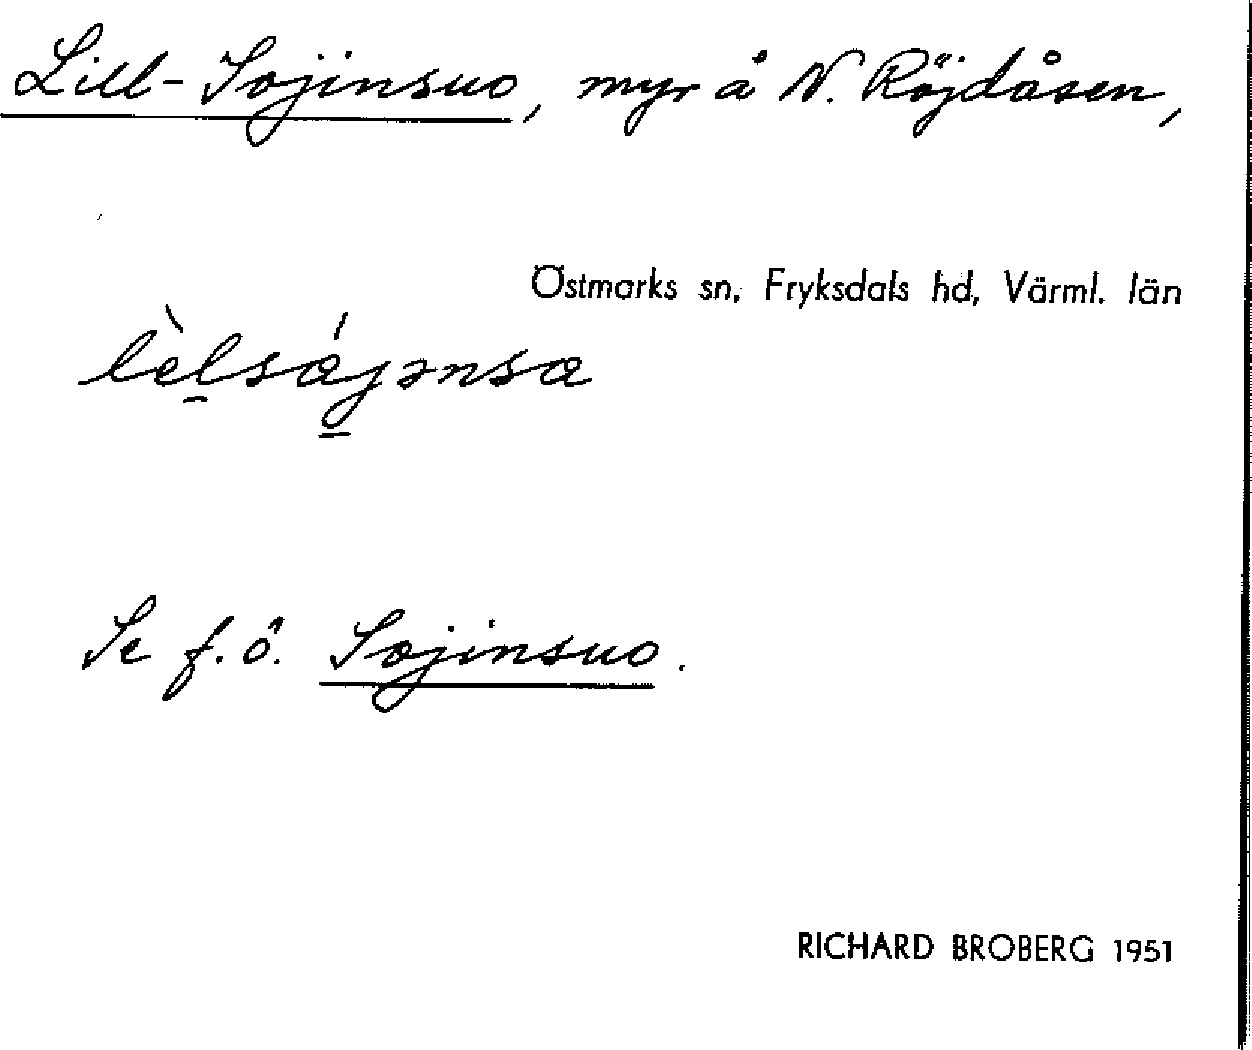 Lill-Sojinsuo, myr å N. Röjdåsen,
Östmarks sn, Fryksdals hd, Värml. län
lèlsájənsa
Se f.ö. Sojinsuo.
RICHARD BROBERG 1951